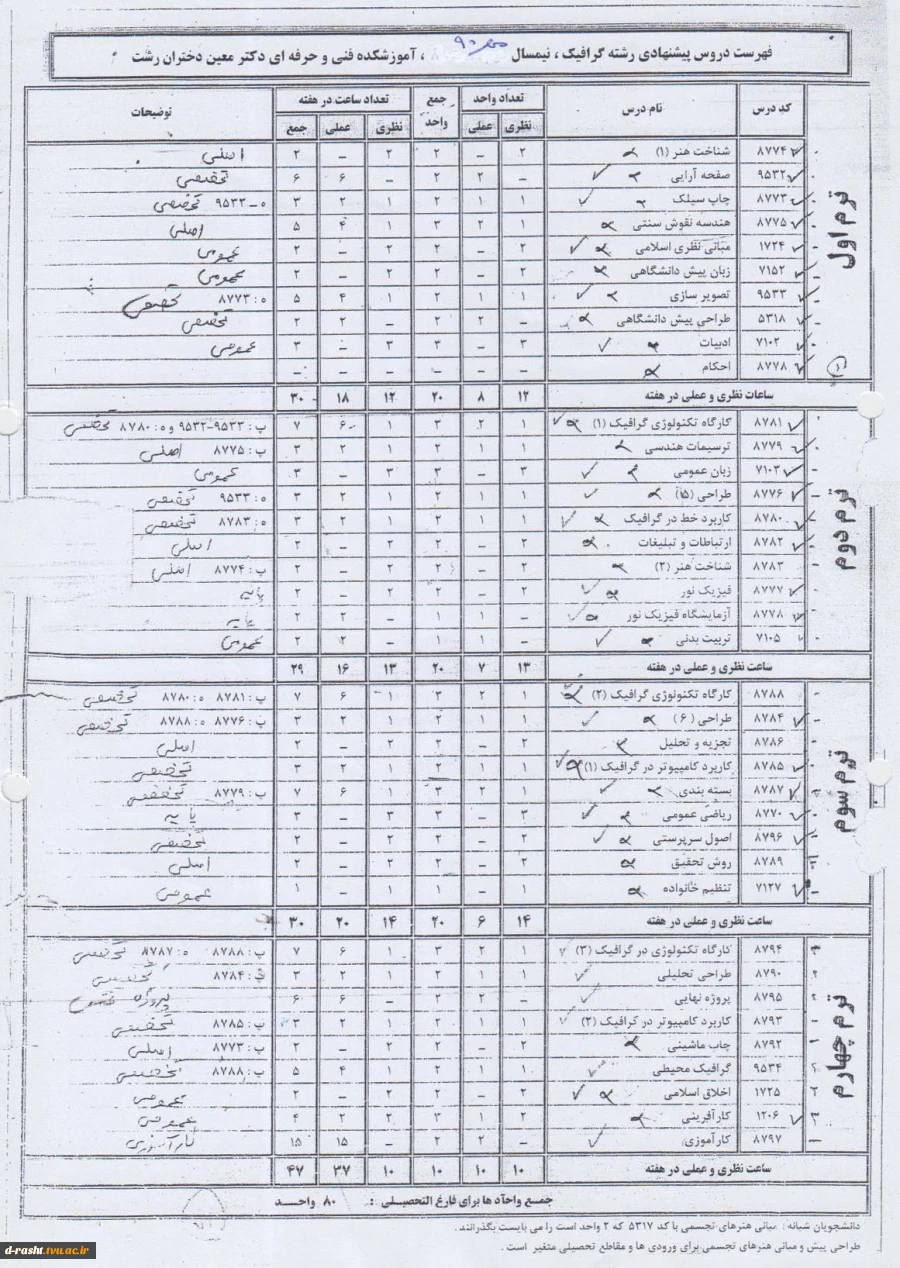 فهرست دروس پیشنهادی رشته گرافیک ، نیمسال ، آموزشکده فنی و حرفه ای دکتر معین دختران رشت
کد درس نام درس تعداد واحد جمع واحد تعداد ساعت در هفته توضیحات
نظری عملی نظری عملی جمع
ترم اول
۸۷۷۴ شناخت هنر (۱) ۲ _ ۲ ۲ _ ۲ اصلی
۹۵۳۲ صفحه آرایی _ ۲ ۲ _ ۶ ۶ تخصصی
۸۷۷۳ چاپ سیلک ۱ ۱ ۲ ۱ ۲ ۳ ه_۹۵۳۳ تخصصی
۸۷۷۵ هندسه نقوش سنتی ۱ ۲ ۳ ۱ ۴ ۵ اصلی
۱۷۲۴ مبانی نظری اسلامی ۲ _ ۲ ۲ _ ۲ عمومی
۷۱۵۲ زبان پیش دانشگاهی ۲ _ ۲ ۲ _ ۲ عمومی
۹۵۳۳ تصویر سازی ۱ ۱ ۲ ۱ ۴ ۵ ه: ۸۷۷۳ تخصصی
۵۳۱۸ طراحی پیش دانشگاهی _ ۲ ۲ _ ۲ ۲ تخصصی
۷۱۰۲ ادبیات ۳ _ ۳ ۳ _ ۳ عمومی
۸۷۷۸ احکام _ _ _ _ _ _
ساعات نظری و عملی در هفته ۱۲ ۸ ۲۰ ۱۲ ۱۸ ۳۰
ترم دوم
۸۷۸۱ کارگاه تکنولوژی گرافیک (۱) ۱ ۲ ۳ ۱ ۶ ۷ پ: ۹۵۳۳-۹۵۳۲ و ه: ۸۷۸۰ تخصصی
۸۷۷۹ ترسیمات هندسی ۱ ۱ ۲ ۱ ۲ ۳ پ: ۸۷۷۵ اصلی
۷۱۰۳ زبان عمومی ۳ _ ۳ ۳ _ ۳ عمومی
۸۷۷۶ طراحی (۵) ۱ ۱ ۲ ۱ ۲ ۳ ه: ۹۵۳۳ تخصصی
۸۷۸۰ کاربرد خط در گرافیک ۱ ۱ ۲ ۱ ۲ ۳ ه: ۸۷۸۳ تخصصی
۸۷۸۲ ارتباطات و تبلیغات ۲ _ ۲ ۲ _ ۲ اصلی
۸۷۸۳ شناخت هنر (۲) ۲ _ ۲ ۲ _ ۲ پ: ۸۷۷۴ اصلی
۸۷۷۷ فیزیک نور ۲ _ ۲ ۲ _ ۲ پایه
۸۷۷۸ آزمایشگاه فیزیک نور _ ۱ ۱ _ ۲ ۲ پایه
۷۱۰۵ تربیت بدنی _ ۱ ۱ _ ۲ ۲ عمومی
ساعت نظری و عملی در هفته ۱۳ ۷ ۲۰ ۱۳ ۱۶ ۲۹
ترم سوم
۸۷۸۸ کارگاه تکنولوژی گرافیک (۲) ۱ ۲ ۳ ۱ ۶ ۷ پ: ۸۷۸۱ ه: ۸۷۸۰ تخصصی
۸۷۸۴ طراحی (۶) ۱ ۱ ۲ ۱ ۲ ۳ پ: ۸۷۷۶ ه: ۸۷۸۸ تخصصی
۸۷۸۶ تجزیه و تحلیل ۲ _ ۲ ۲ _ ۲ اصلی
۸۷۸۵ کاربرد کامپیوتر در گرافیک (۱) ۱ ۱ ۲ ۱ ۲ ۳ تخصصی
۸۷۸۷ بسته بندی ۱ ۲ ۳ ۱ ۶ ۷ پ: ۸۷۷۹ تخصصی
۸۷۷۰ ریاضی عمومی ۳ _ ۳ ۳ _ ۳ پایه
۸۷۹۶ اصول سرپرستی ۲ _ ۲ ۲ _ ۲ تخصصی
۸۷۸۹ روش تحقیق ۲ _ ۲ ۲ _ ۲ اصلی
۷۱۲۷ تنظیم خانواده ۱ _ ۱ ۱ _ ۱ عمومی
ساعت نظری و عملی در هفته ۱۴ ۶ ۲۰ ۱۴ ۲۰ ۳۰
ترم چهارم
۸۷۹۴ کارگاه تکنولوژی در گرافیک (۳) ۱ ۲ ۳ ۱ ۶ ۷ پ: ۸۷۸۸ ه: ۸۷۸۷ تخصصی
۸۷۹۰ طراحی تحلیلی ۱ ۱ ۲ ۱ ۲ ۳ پ: ۸۷۸۴ تخصصی
۸۷۹۵ پروژه نهایی _ ۲ ۲ _ ۶ ۶ پروژه
۸۷۹۳ کاربرد کامپیوتر در گرافیک (۲) ۱ ۱ ۲ ۱ ۲ ۳ پ: ۸۷۸۵ تخصصی
۸۷۹۲ چاپ ماشینی ۲ _ ۲ ۲ _ ۲ پ: ۸۷۷۳ اصلی
۹۵۳۴ گرافیک محیطی ۱ ۱ ۲ ۱ ۴ ۵ پ: ۸۷۸۸ تخصصی
۱۷۲۵ اخلاق اسلامی ۲ _ ۲ ۲ _ ۲ عمومی
۱۲۰۶ کارآفرینی ۲ ۱ ۳ ۲ ۲ ۴ عمومی
۸۷۹۷ کارآموزی _ ۲ ۲ _ ۱۵ ۱۵ کارآموزی
ساعت نظری و عملی در هفته ۱۰ ۱۰ ۱۰ ۱۰ ۳۷ ۴۷
جمع واحد ها برای فارغ التحصیلی : ۸۰ واحد
دانشجویان شبانه : مبانی هنرهای تجسمی با کد ۵۳۱۷ که ۲ واحد است را می بایست بگذرانند .
طراحی پیش و مبانی هنرهای تجسمی برای ورودی ها و مقاطع تحصیلی متغیر است .
d-rasht.tvu.ac.ir